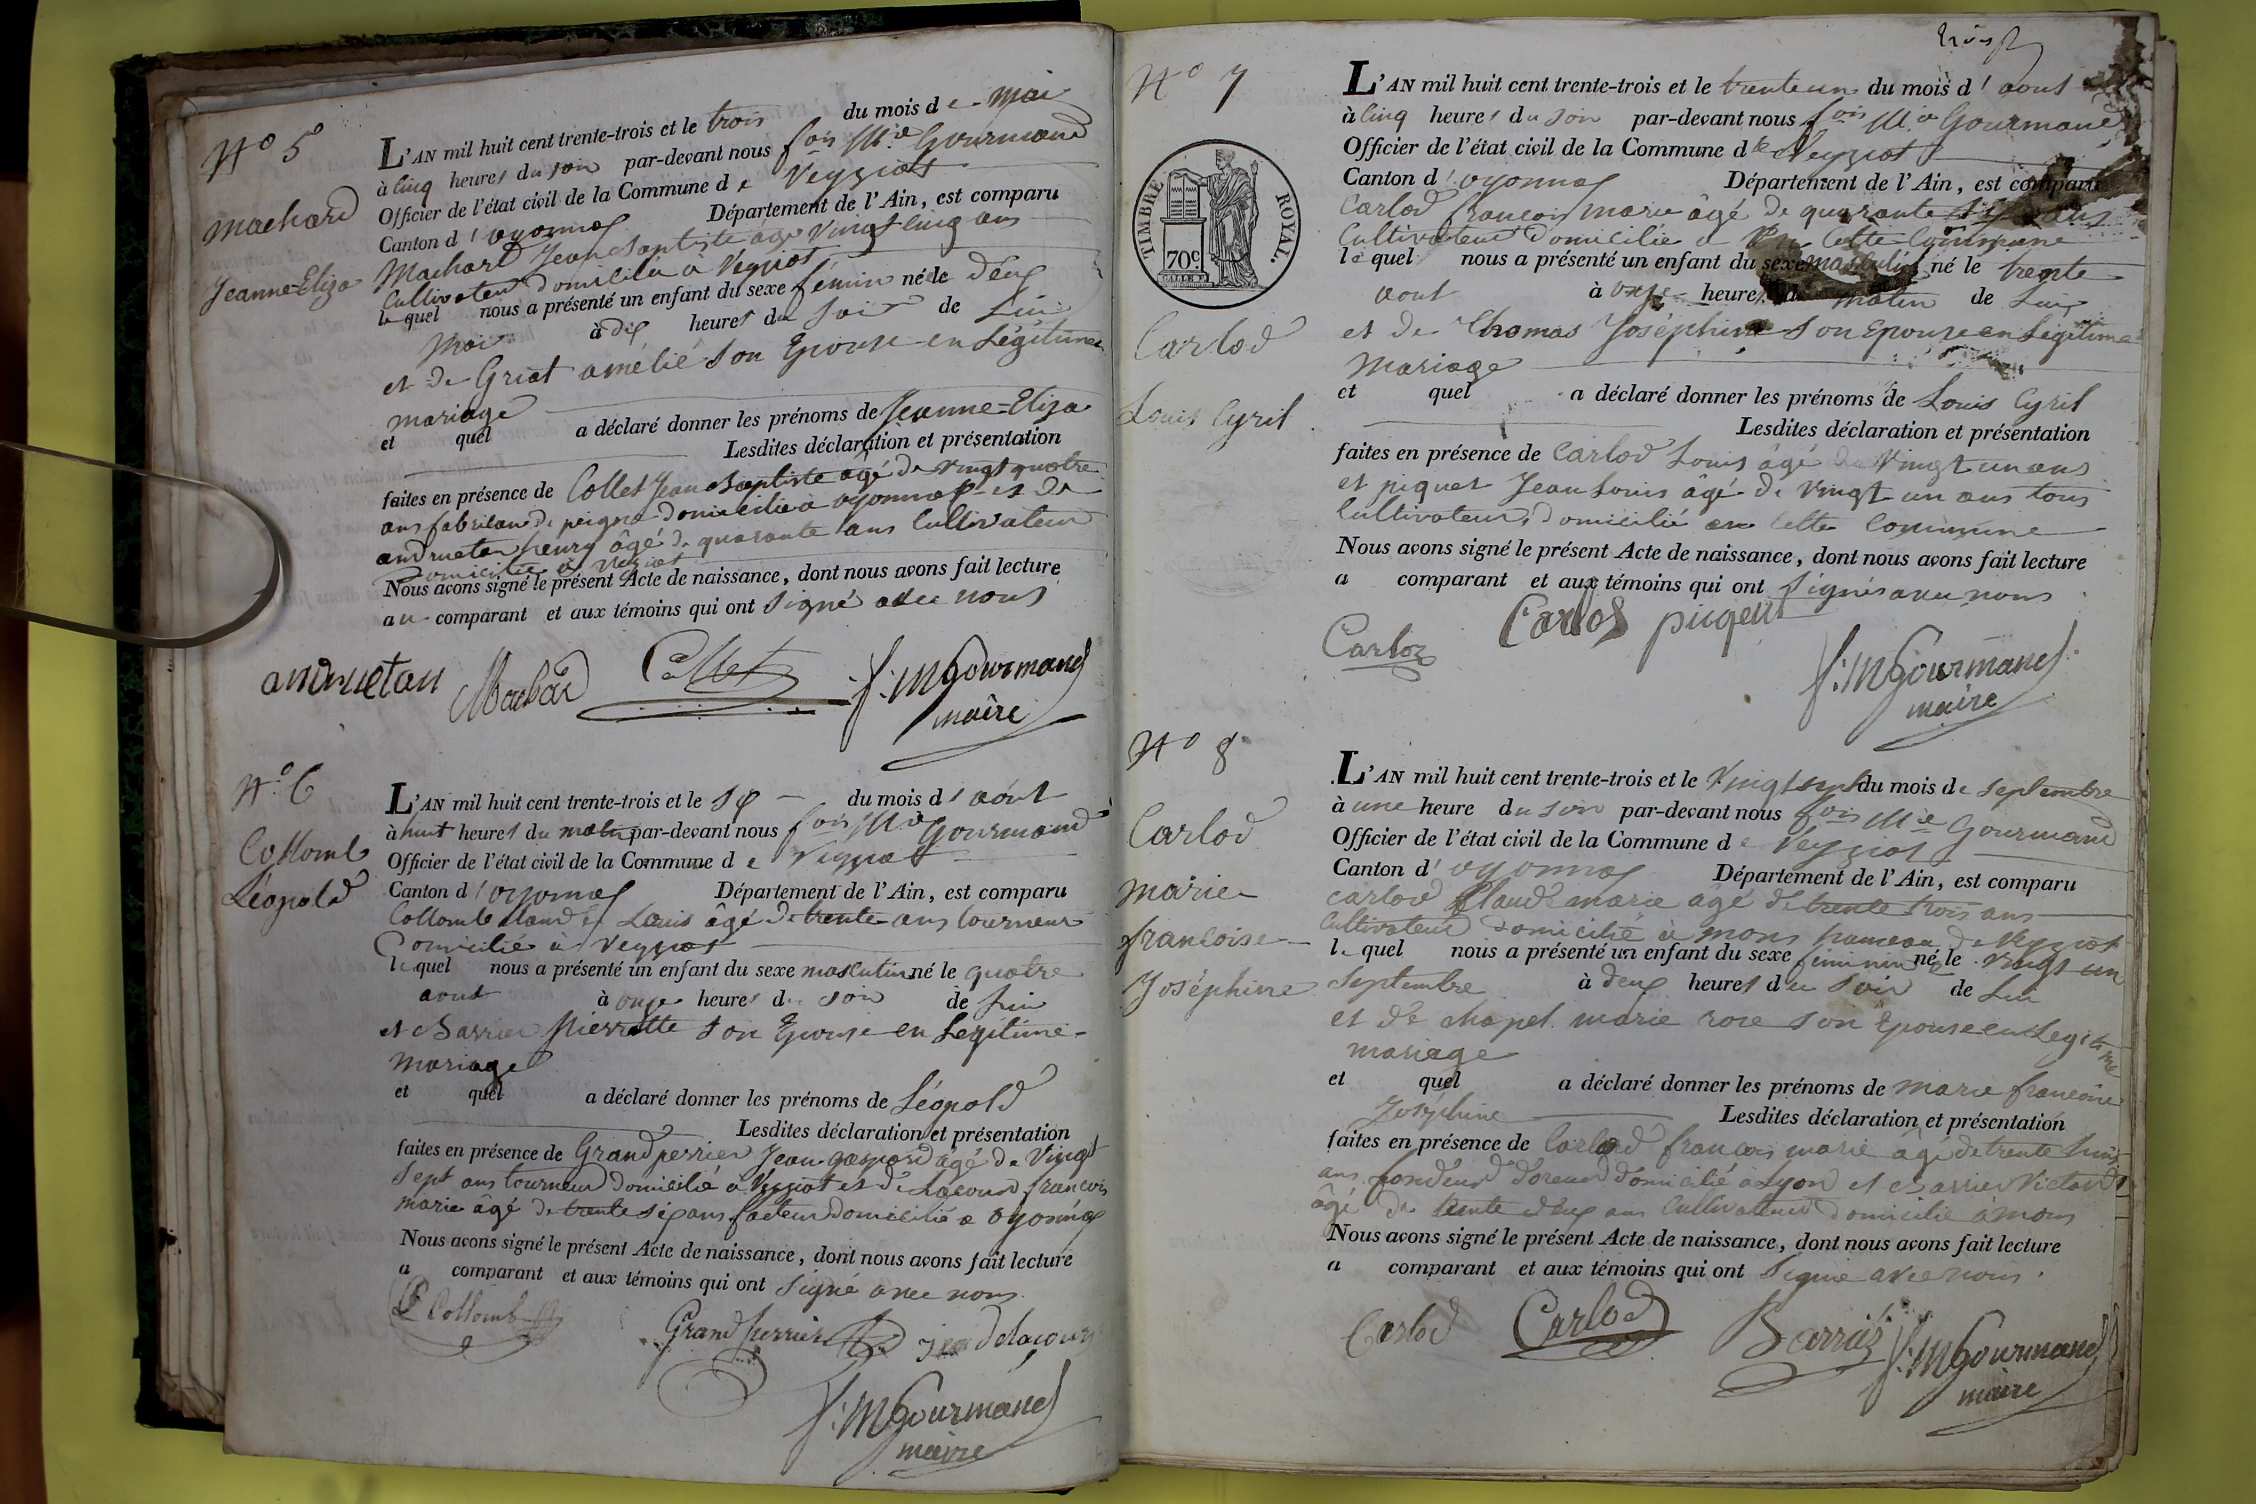 N° 5
Machard
Jeanne-Eliza
L'AN mil huit cent trente-trois et le trois du mois de mai
à cinq heures du soir par-devant nous fois Mie Gourmand
Officier de l'état civil de la Commune de Veyziat
Canton d'oyonnax Département de l'Ain, est comparu
Machard Jean Baptiste âgé vingt-cinq ans
Cultivateur domicilié à Veyziat
lequel nous a présenté un enfant du sexe féminin né le deux
Mai à dix heures du soir de Lui
et de Griot amélié son Epouse en Légitime
mariage
et quel a déclaré donner les prénoms de Jeanne=Eliza
Lesdites déclaration et présentation
faites en présence de Collet Jean Baptiste âgé de vingt quatre
ans fabricant de peignes domicilié à oyonnax et de
andruetan henry âgé de quarante ans Cultivateur
domicilié à Veziat
Nous avons signé le présent Acte de naissance, dont nous avons fait lecture
au comparant et aux témoins qui ont signé avec nous
andruetan Machard Collet f: M Gourmand
maire
N° 6
Collomb
Léopold
L'AN mil huit cent trente-trois et le six du mois d'août
à huit heures du matin par-devant nous fois Mie Gourmand
Officier de l'état civil de la Commune de Veyziat
Canton d'oyonnax Département de l'Ain, est comparu
Collomb Claude Louis âgé de trente ans tourneur
Domicilié à Veyziat
lequel nous a présenté un enfant du sexe masculin né le quatre
aout à onze heures du soir de Lui
et Barrier Pierrette son Epouse en Legitime
mariage
et quel a déclaré donner les prénoms de Léopold
Lesdites déclaration et présentation
faites en présence de Grandperrier Jean gaspard âgé de Vingt
Sept ans tourneur domicilié à Veyziat et Delacour françois
marie âgé de trente six ans facteur domicilié a oyonnax
Nous avons signé le présent Acte de naissance, dont nous avons fait lecture
a comparant et aux témoins qui ont signé avec nous
Collomb Grand perrier delacour
f: M Gourmand
maire
N° 7
TIMBRE ROYAL.
70c
Carlod
Louis Cyril
L'AN mil huit cent trente-trois et le trente un du mois d'aout
à cinq heures du soir par-devant nous fois Mie Gourmand
Officier de l'état civil de la Commune de Veyziat
Canton d'oyonnax Département de l'Ain, est comparu
Carlod françois marie âgé de quarante six ans
Cultivateur domicilié cette Commune
lequel nous a présenté un enfant du sexe masculin né le trente
aout à onze heures du matin de Lui
et de Thomas Joséphine son Epouse en Légitime
Mariage
et quel a déclaré donner les prénoms de Louis Cyril
Lesdites déclaration et présentation
faites en présence de Carlod Louis âgé de Vingt un ans
et piquet Jean Louis âgé de vingt un ans tous
Cultivateurs domicilié en cette Commune
Nous avons signé le présent Acte de naissance, dont nous avons fait lecture
a comparant et aux témoins qui ont signés avec nous
Carlod Carlod piquet
f: M Gourmand
maire
N° 8
Carlod
marie
françoise
Joséphine
L'AN mil huit cent trente-trois et le Vingt sept du mois de septembre
à une heure du soir par-devant nous fois Mie Gourmand
Officier de l'état civil de la Commune de Veyziat
Canton d'oyonnax Département de l'Ain, est comparu
carlod Claude marie âgé de trente trois ans
Cultivateur domicilié à mons hameau de Veyziat
lequel nous a présenté un enfant du sexe feminin né le vingt un
Septembre à deux heures du soir de Lui
et de chapel marie rose son Epouse en Legitime
mariage
et quel a déclaré donner les prénoms de marie francoise
Joséphine Lesdites déclaration et présentation
faites en présence de Carlod francois marie âgé de trente huit
ans fondeur doreur domicilié à Lyon et Barrier Victor
âgé de trente deux ans Cultivateur domicilié à mons
Nous avons signé le présent Acte de naissance, dont nous avons fait lecture
a comparant et aux témoins qui ont signé avec nous.
Carlod Carlod Barrier f: M Gourmand
maire